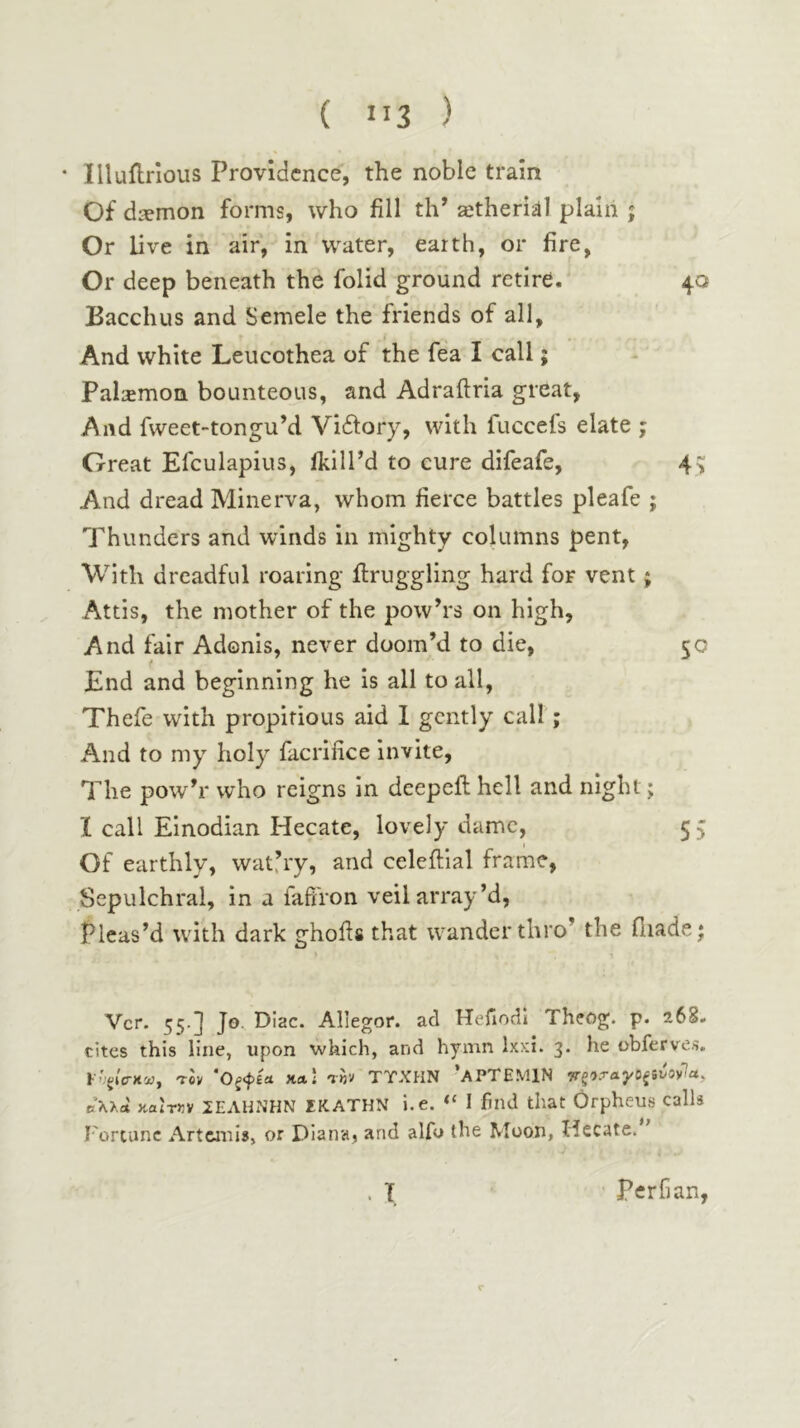 ( 113 )
Illuſtrious Providence, the noble train
Of dæmon forms, who fill th' ætherial plain ;
Or live in air, in water, earth, or fire,
Or deep beneath the ſolid ground retire. 40
Bacchus and Semele the friends of all,
And white Leucothea of the ſea I call ;
Palæmon bounteous, and Adraſtria great,
And ſweet-tongu'd Victory, with ſucceſs elate ;
Great Eſculapius, ſkill'd to cure diſeaſe, 45
And dread Minerva, whom fierce battles pleaſe ;
Thunders and winds in mighty columns pent,
With dreadful roaring ſtruggling hard for vent ;
Attis, the mother of the pow'rs on high,
And fair Adonis, never doom'd to die, 50
End and beginning he is all to all,
Theſe with propitious aid I gently call ;
And to my holy ſacrifice invite,
The pow'r who reigns in deepeſt hell and night ;
I call Einodian Hecate, lovely dame, 55
Of earthly, wat'ry, and celeſtial frame,
Sepulchral, in a ſaffron veil array'd,
Pleas'd with dark ghoſts that wander thro' the ſhade ;
Ver. 55.] Jo. Diac. Allegor. ad Heſiodi Theog. p. 268.
cites this line, upon which, and hymn lxxi. 3. he obſerves.
Εὑρίσκω, τὸν Ὀρφέα καὶ τὴν ΤΥΧΗΝ ἈΡΤΕΜΙΝ προσαγορεύοντα,
ἀλλὰ καὶ τὴν ΣΕΛΗΝΗΝ ΕΚΑΤΗΝ i. e. “ I find that Orpheus calls
Fortune Artemis, or Diana, and alſo the Moon, Hecate.”
I Perſian,